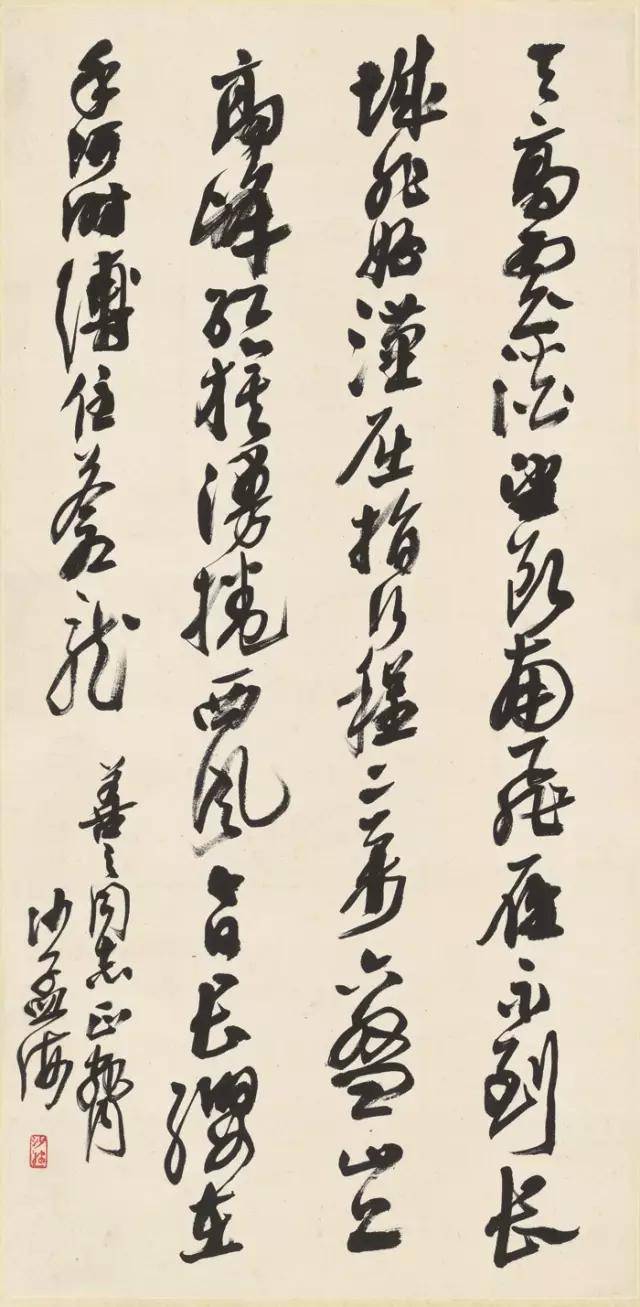 天高雲淡望断南飛雁不到长
城非好漢屈指行程二萬六盤山上
高峰红旗漫捲西風今日长纓在
手何时缚住蒼龍
善之同志正
沙孟海